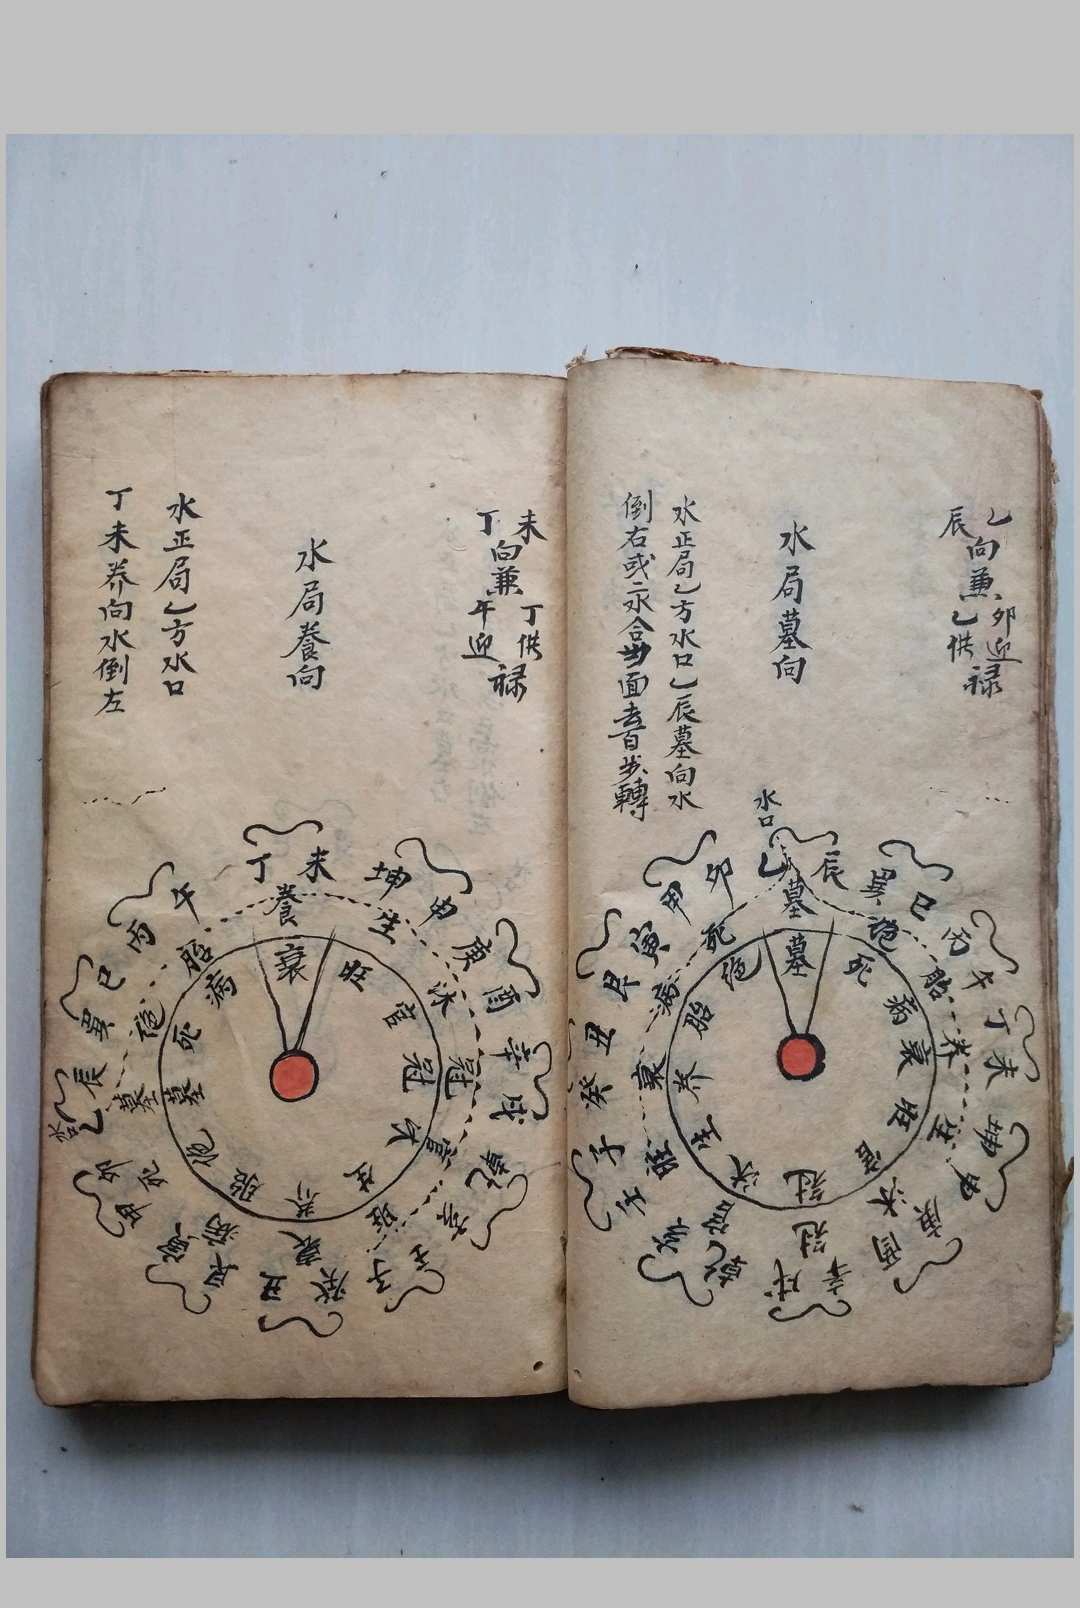 乙辰向兼卯迎乙供祿
水局墓向
水正局乙方水口乙辰墓向水
倒右或二水合步面去百步轉
水口
乙辰
巽巳
丙午
丁未
坤申
庚酉
辛戌
乾亥
壬子
癸丑
艮寅
甲卯
墓絕胎养生沐冠官旺衰病死
墓死病衰旺官冠沐生养胎绝
未丁向兼丁供午迎祿
水局養向
水正局乙方水口
丁未养向水倒左
丁未
坤申
庚酉
辛戌
乾亥
壬子
癸丑
艮寅
甲卯
乙辰
水口
巽巳
丙午
養生沐冠官旺衰病死墓絕胎
衰旺官冠沐生养胎绝墓死病